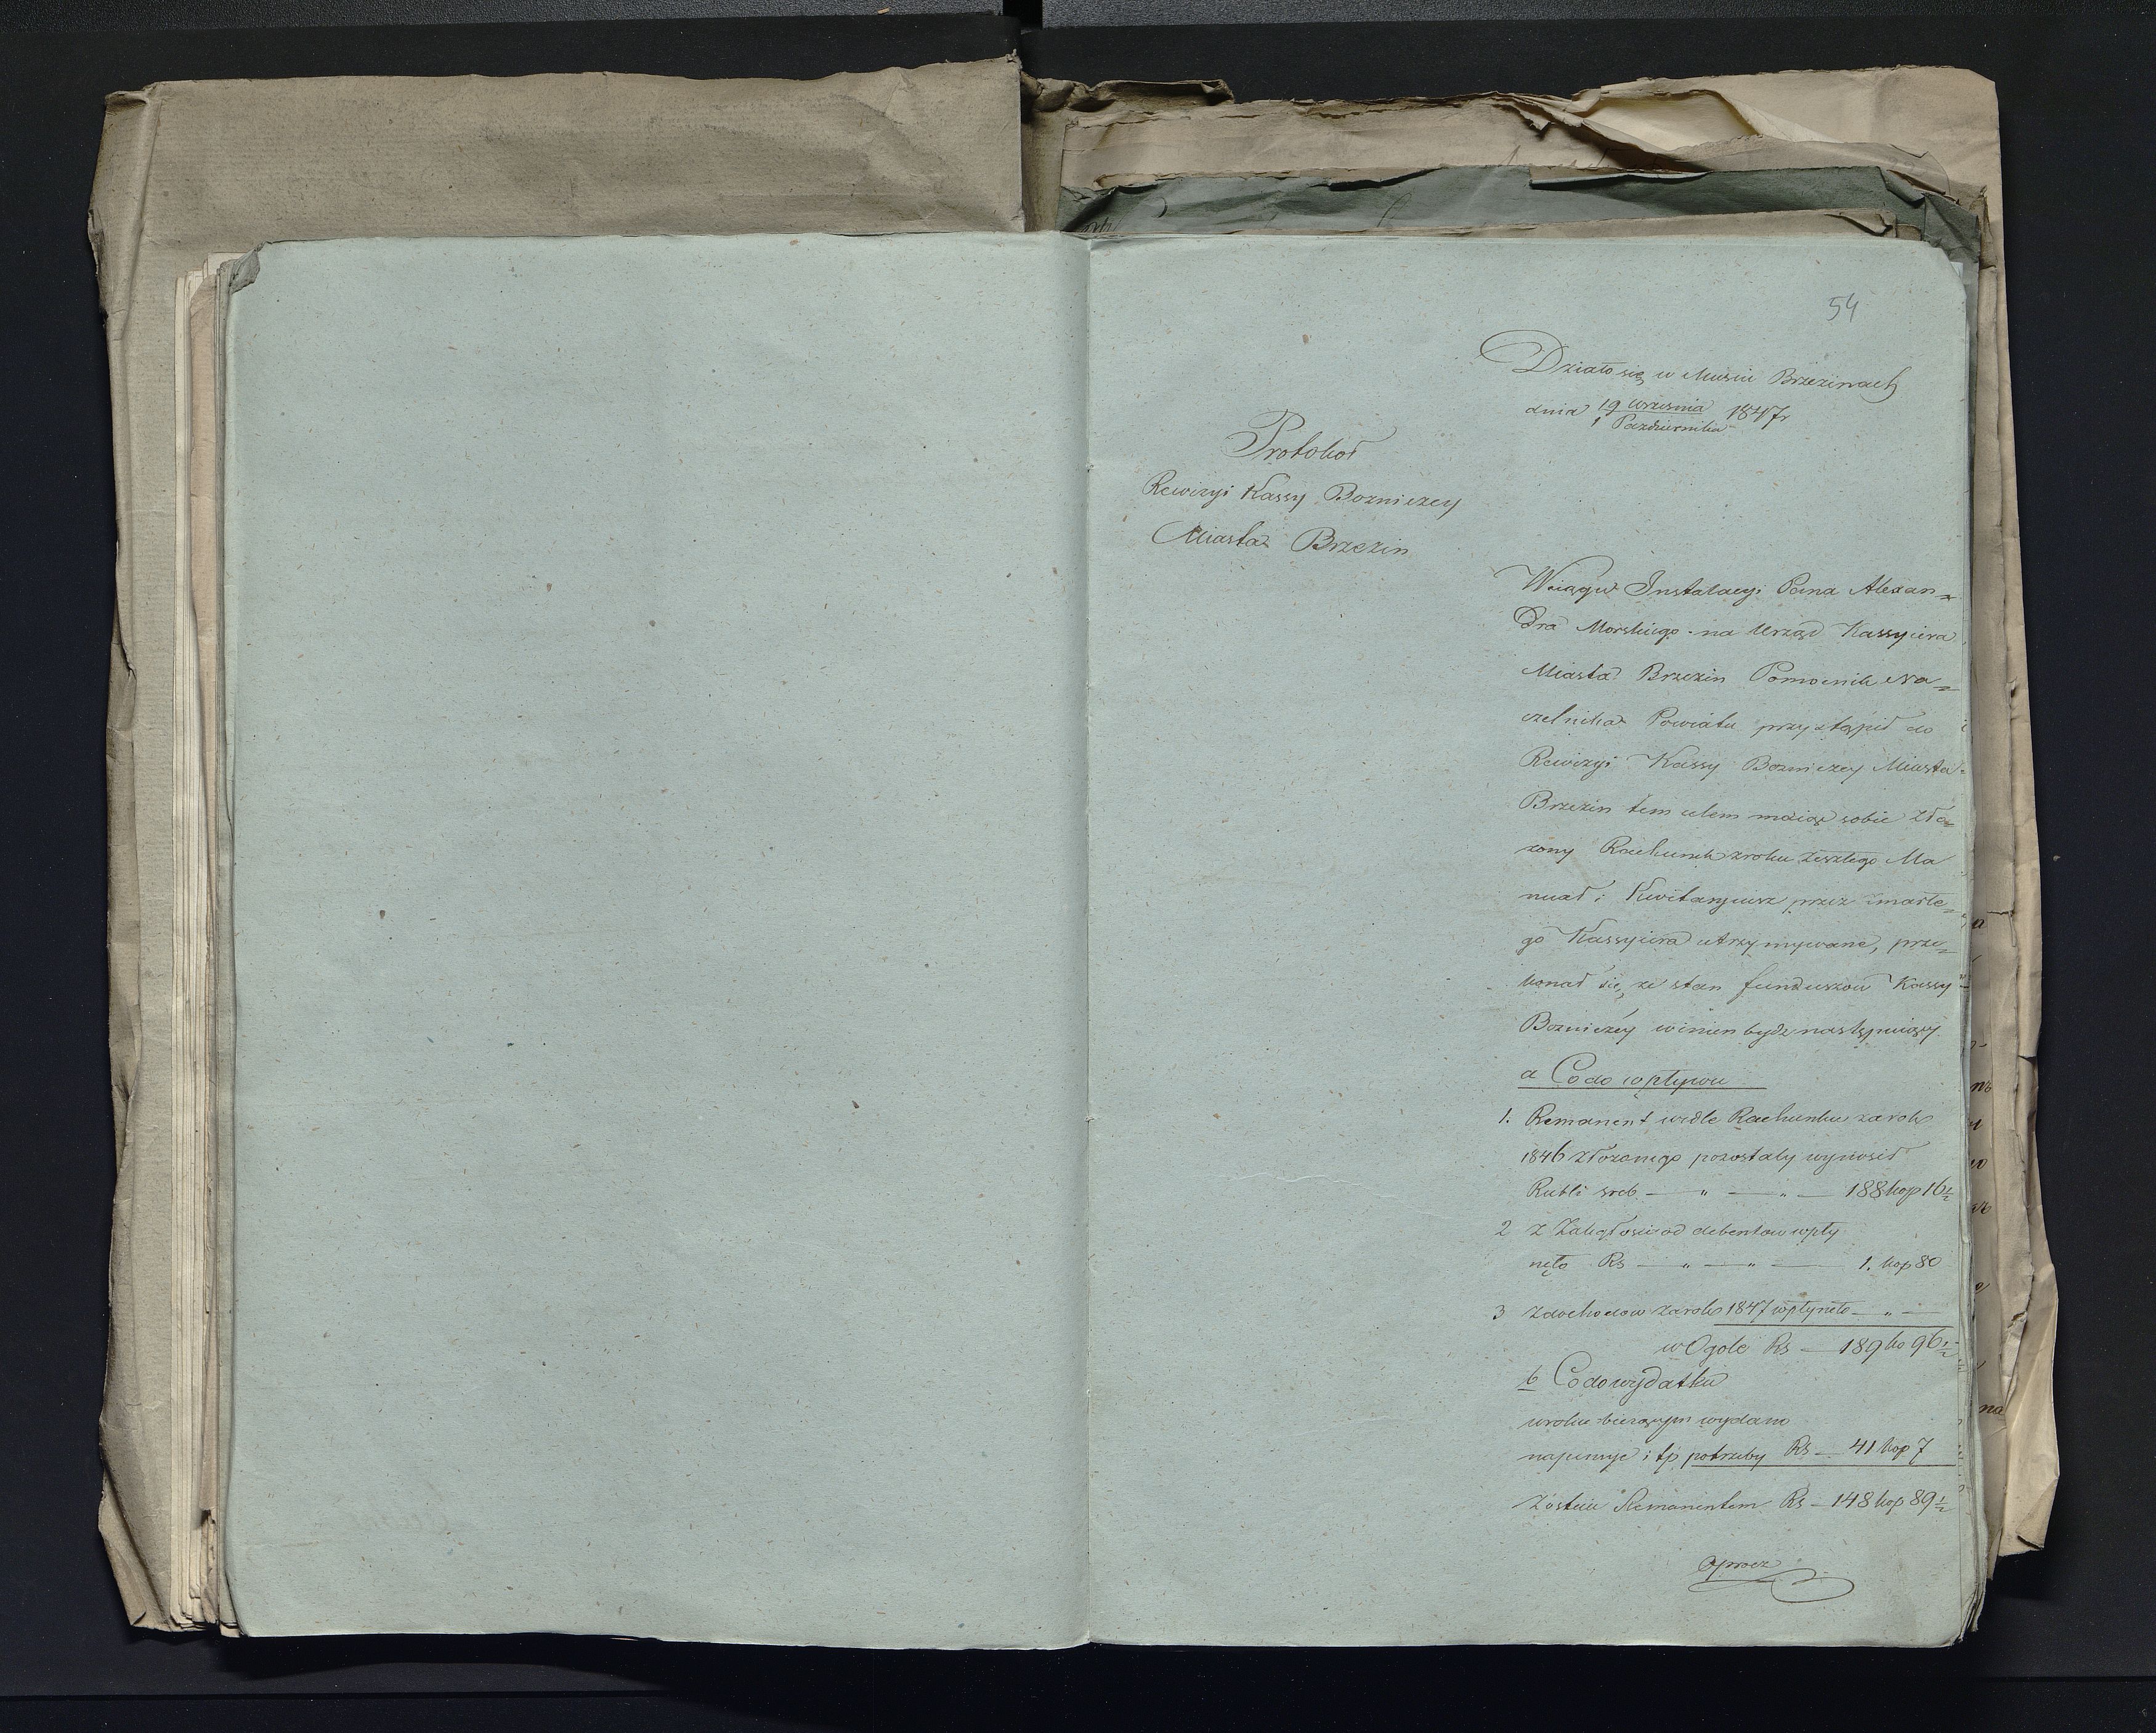 54
Działo się w Mieście Brzezinach
dnia 19 Września 1847r
1 Pazdziernika
Protokoł
Rewizyi Kassy Bozniczey
Miasta Brzezin
Wciągu Instalacyi Pana Alexan=
dra Morskiego na Urząd Kassyiera
Miasta Brzezin Pomocnik Na=
czelnika Powiatu przystąpił do
Rewizyi Kassy Bozniczey Miasta
Brzezin tem celem maiąc sobie zło=
zony Rachunek zroku zeszłego Ma
nuał i Kwitaryusz przez zmarłe=
go Kassyiera utrzymywane, prze=
konał się, ze stan funduszow Kassy
Bozniczey winien bydz następuiący
a Co do wpływu
1. Remanent wedle Rachunku za rok
1846 złozonego pozostały wynosił
Rubli sreb. — " — " — 188 kop 16½
2 z Zaległosci od debentow wpły
nęło Rs — " — " — 1. kop 80
3 zdochodow za rok 1847 wpłynęło — " —
w Ogole Rs — 189 ko 96½
b Co do wydatku
wroku bieżącym wydano
na pensye i tp potrzeby Rs — 41 kop 7
Zostaie Remanentem Rs — 148 kop 89½
oprocz